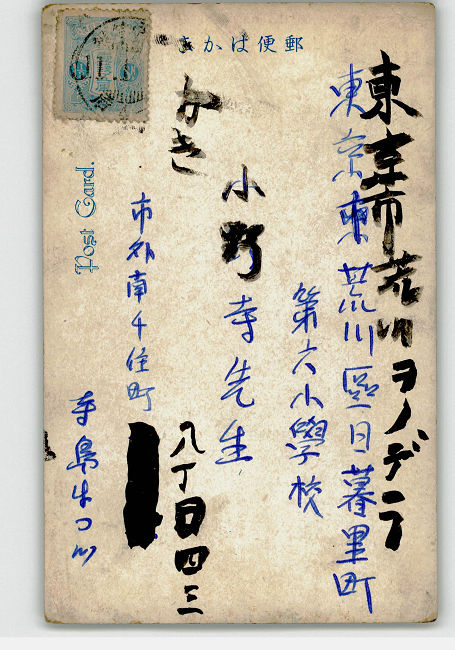 郵便はかき
東京市荒川ヲノデラ
東京東荒川區日暮里町
第六小學校
小野寺先生
かき
八丁目四三
市外南千住町
寺島
Post Card.